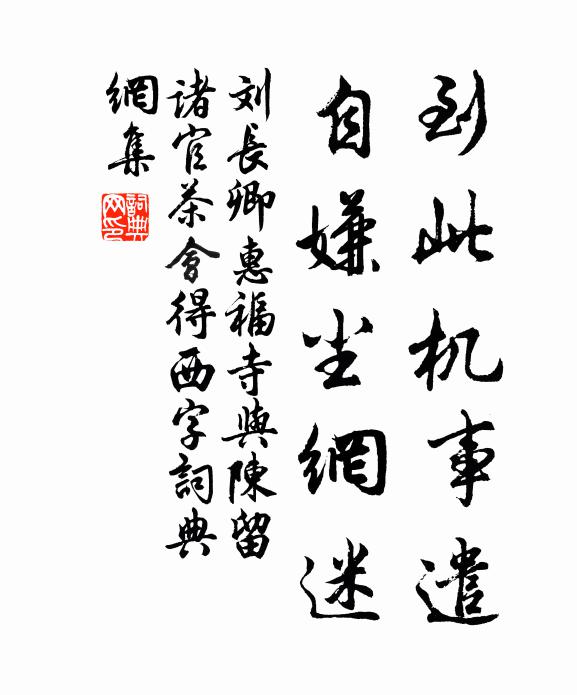 到此机事遣
自嫌尘網迷
刘長卿惠福寺與陳留
諸官茶會得西字詞典
網集
詞典
网印